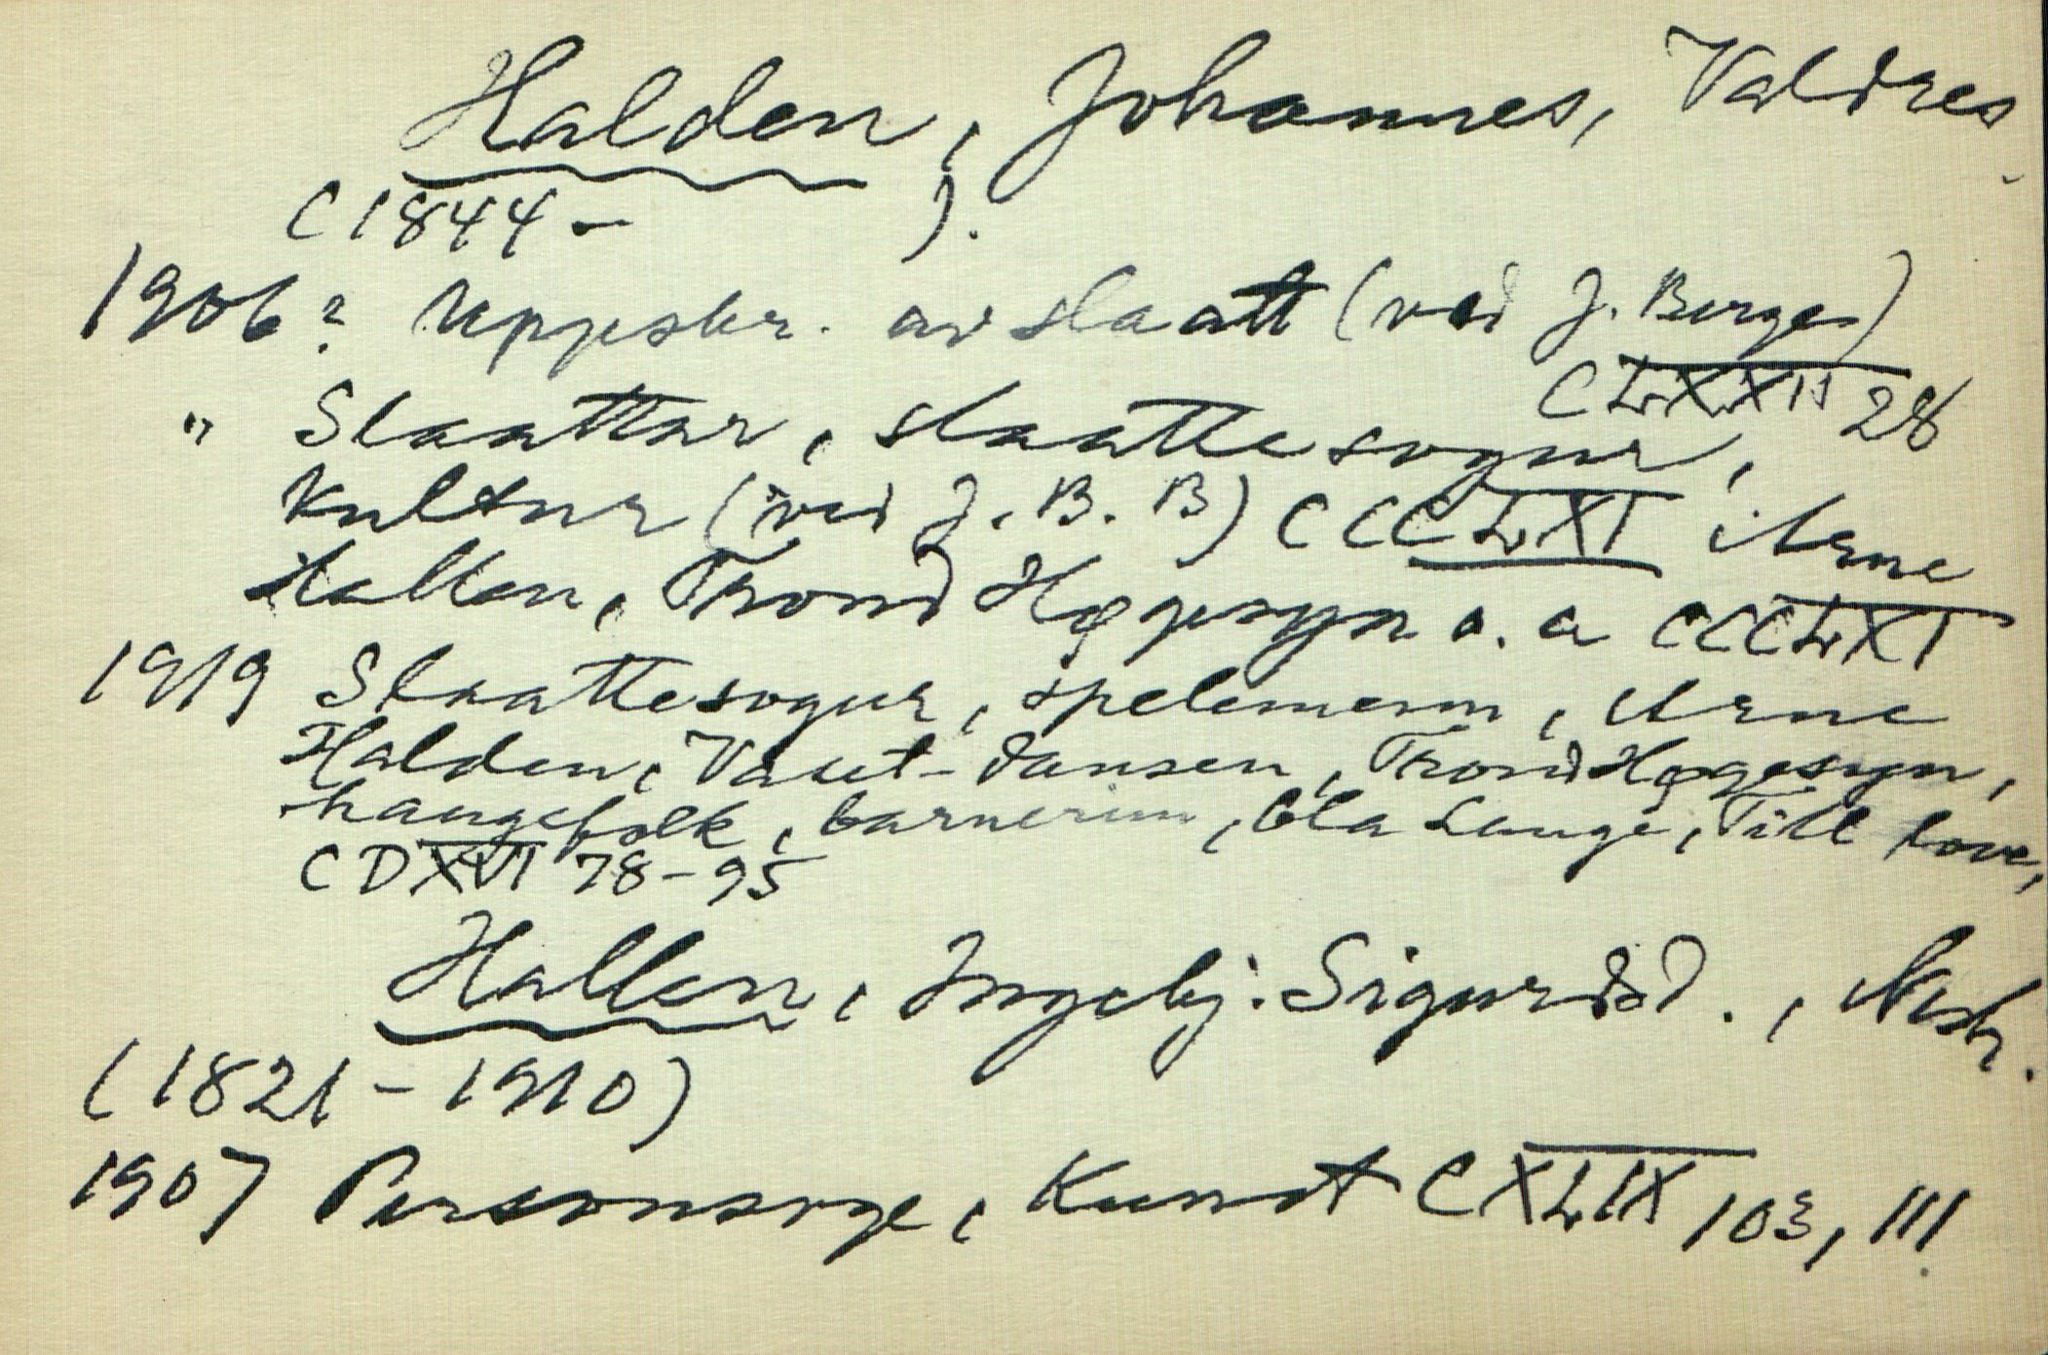 Halden, Johannes, Valdres
(1844 - ).
1906? Uppskr. av slaatt (ved J. Berge)
CLXXII 28
" Slaattar, slaattesogur,
Kultur (ved J. B. B) CCCLXI Arne
Hallen, Trond Høgesyn o. a CCCLXI
1919 Slaattesogur, spelemenn, Arne
Halden, Valset-dansen, Trond Høgesyn,
haugefolk, barnerim, Ola Lauge, Till
CDXVI 78-95
Hallen, Ingebj. Sigurdsd.,
(1821-1910)
1907 Personsoge, Kunst CXLIX 103, 111